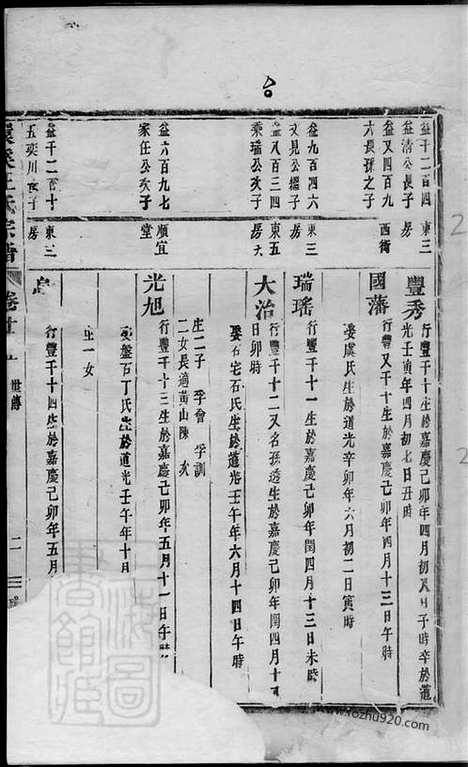 益千二百四 東三
益清公長子 房
豐秀
行豐千十生於嘉慶己卯年四月初八日子時辛於道
光壬寅年四月初七日丑時
益又四百九 西街
六長孫之子
國藩
行豐又千十生於嘉慶己卯年四月十三日午時
娶虞氏生於道光辛卯年六月初二日寅時
益九百四六 東三
文見公繼子 房
瑞瑤
行豐千十一生於嘉慶己卯年閏四月十三日未時
益八百三四 東五
秉瑞公次子 房大
大治
行豐千十二又名孫透生於嘉慶己卯年閏四月十五
日卯時
娶石宅石氏生於道光壬午年六月十四日午時
益六百九七 順宜
家任公次子 堂
光旭
行豐千十三生於嘉慶己卯年五月十一日午時
娶盤石丁氏生於道光壬午年十月
生二子 孚會 孚訓
二女長適黃山陳 次
益千二百十 東三
五奕川長子 房
行豐千十四生於嘉慶己卯年五月
生一女
王氏宗譜
卷廿
世傳
二
上海圖書館藏
www.kozhu920.com